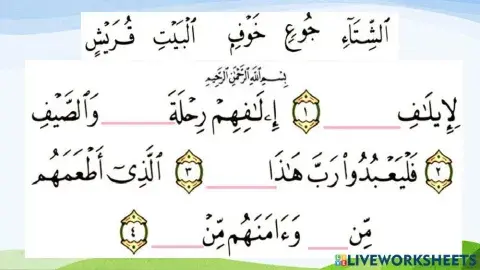 ٱلشِّتَآءِ جُوعٍ خَوْفٍ ٱلْبَيْتِ قُرَيْشٍ
بِسْمِ ٱللَّهِ ٱلرَّحْمَٰنِ ٱلرَّحِيمِ
لِإِيلَٰفِ ______ ١ إِۦلَٰفِهِمْ رِحْلَةَ ______ وَٱلصَّيْفِ
٢ فَلْيَعْبُدُوا۟ رَبَّ هَٰذَا ______ ٣ ٱلَّذِىٓ أَطْعَمَهُم
مِّن ____ وَءَامَنَهُم مِّنْ ____ ٤
LIVEWORKSHEETS